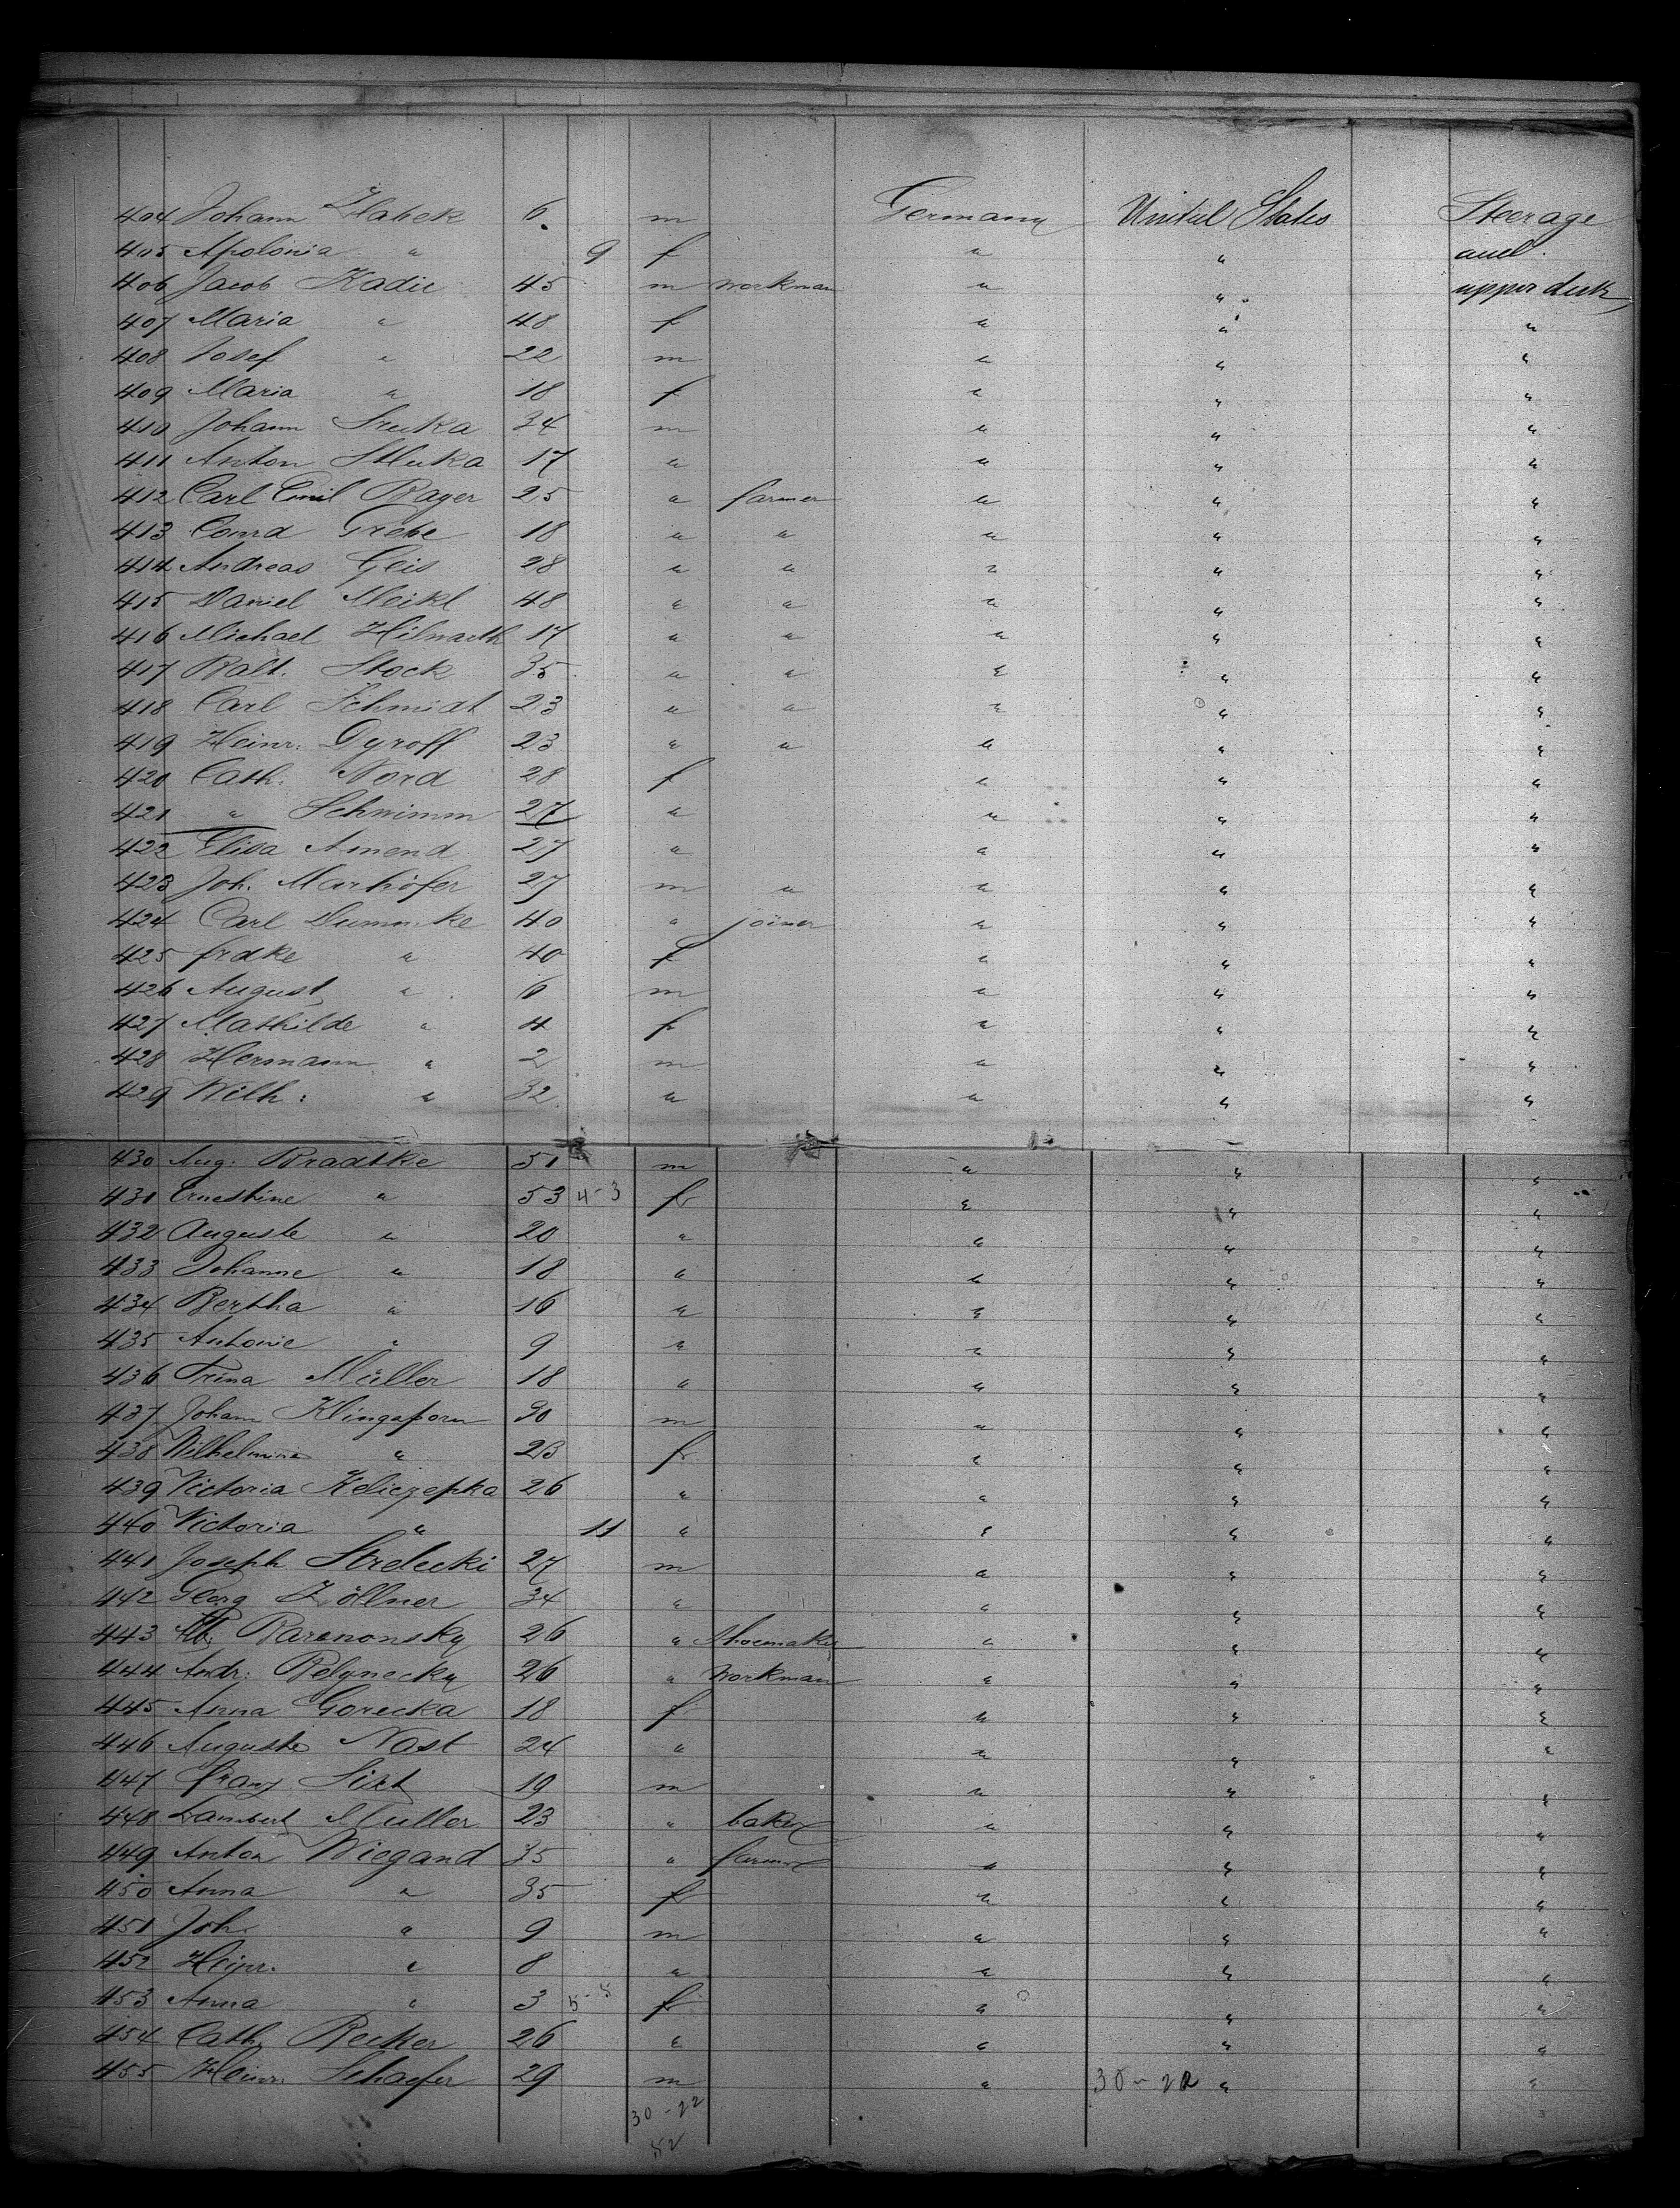 404 Johann Zlabek 6 m Germany United States Steerage
405 Apolonia " 9 f " " and
406 Jacob Kadic 45 m workman " " upper deck
407 Maria " 48 f " " "
408 Josef " 22 m " " "
409 Maria " 18 f " " "
410 Johann 34 m " " "
411 Anton 17 " " " "
412 Carl Emil Bager 25 " farmer " " "
413 Conrd Grebe 18 " " " " "
414 Andreas Geis 28 " " " " "
415 Daniel Meikl 48 " " " " "
416 Michael Hilwarth 17 " " " " "
417 Balt. Stock 35 " " " " "
418 Carl Schmidt 23 " " " " "
419 Heinr: Gyroff 23 " " " " "
420 Cath: Nord 28 f " " "
421 " Schwimm 27 " " " "
422 Elisa Amend 27 " " " "
423 Joh. Marhöfer 27 m " " " "
424 Carl Dummke 40 " joiner " " "
425 frdke " 40 f " " "
426 August " 6 m " " "
427 Mathilde " 4 f " " "
428 Hermann " 2 m " " "
429 Wilh: " 32 " " " "
430 Aug: Bradtke 51 m " " "
431 Ernestine " 53 4-3 f " " "
432 Auguste " 20 " " " "
433 Johanne " 18 " " " "
434 Bertha " 16 " " " "
435 Antonie " 9 " " " "
436 Trina Müller 18 " " " "
437 Johann Klingaporn 30 m " " "
438 Wilhelmine " 23 f " " "
439 Victoria Keliczepka 26 " " " "
440 Victoria " 11 " " " "
441 Joseph Strelecki 27 m " " "
442 Georg Zöllner 34 " " " "
443 Baranonsky 26 " Shoemaker " " "
444 Andr: Belynecky 26 " workman " " "
445 Anna Gorecka 18 f " " "
446 Auguste Nast 24 " " " "
447 franz Sixt 19 m " " "
448 Lambert Muller 23 " baker " " "
449 Anton Wiegand 35 " farmer " " "
450 Anna " 35 f " " "
451 Joh. " 9 m " " "
452 Heinr. " 8 " " " "
453 Anna " 3 5-5 f " " "
454 Cath: Becker 26 " " " "
455 Heinr: Schaefer 29 m " 30-22 " "
30-22
52